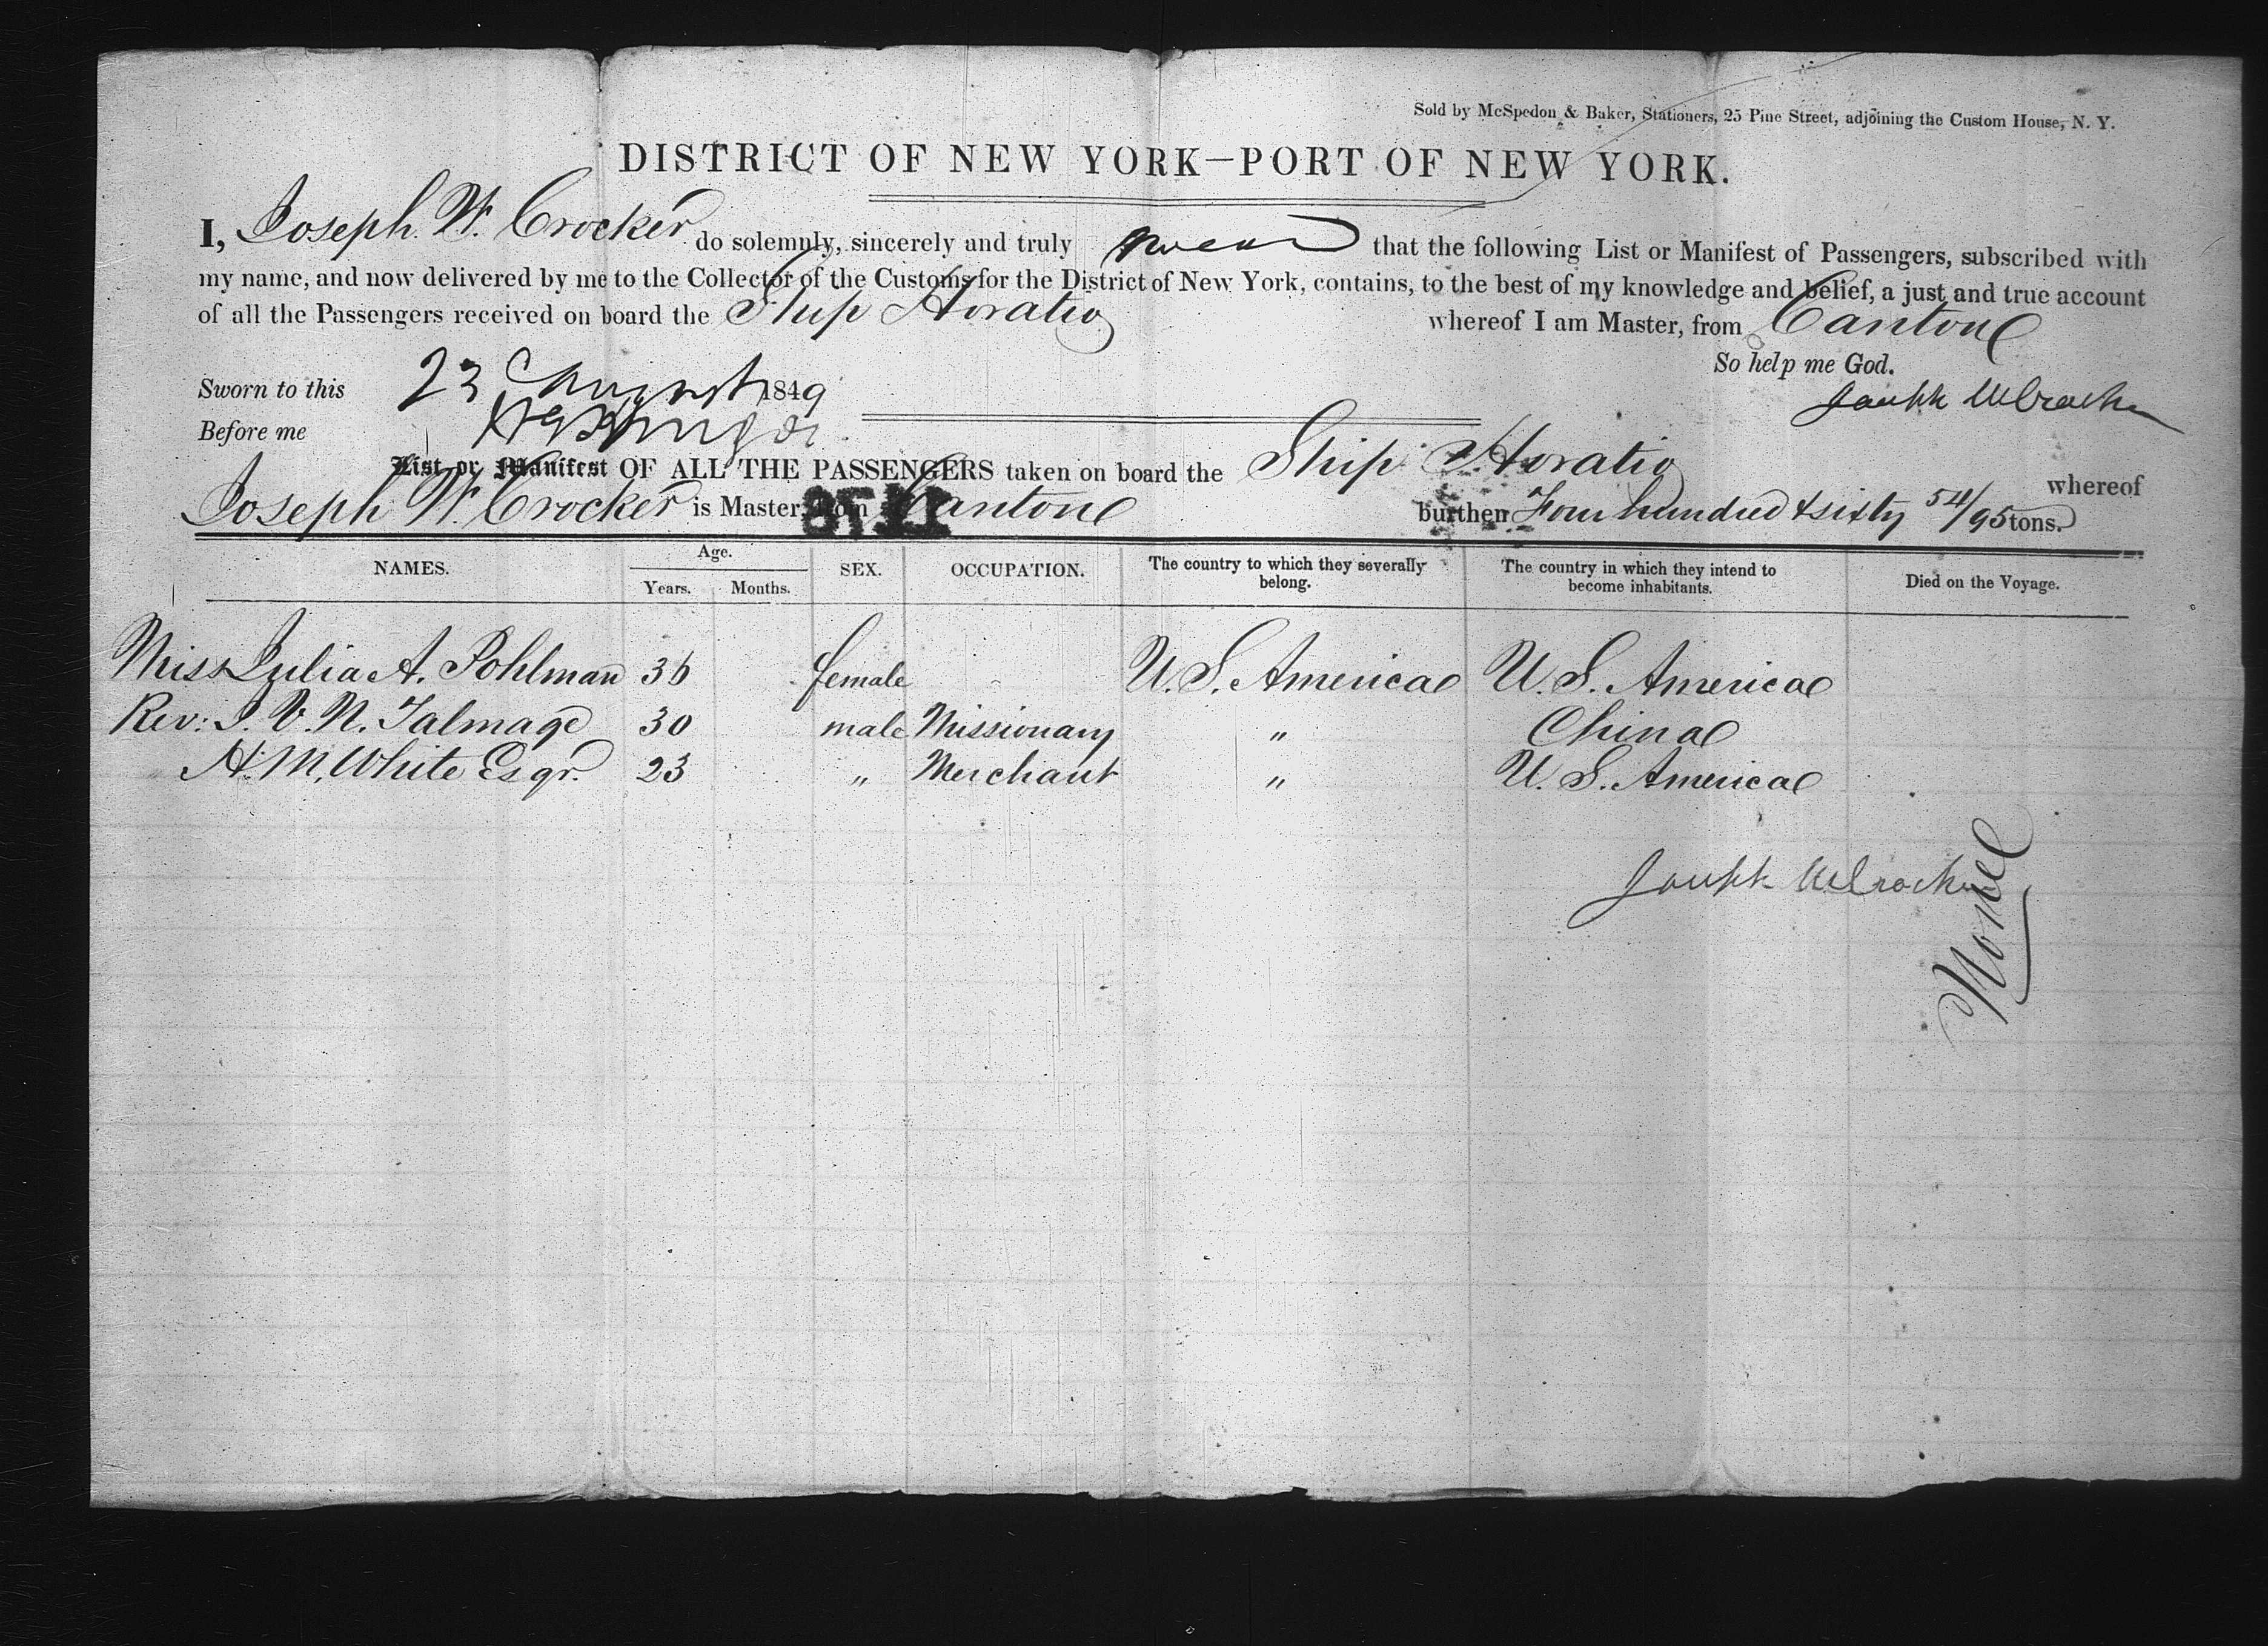 Sold by McSpedon & Baker, Stationers, 25 Pine Street, adjoining the Custom House, N. Y.
DISTRICT OF NEW YORK—PORT OF NEW YORK.
I, Joseph W. Crocker do solemnly, sincerely and truly swear that the following List or Manifest of Passengers, subscribed with
my name, and now delivered by me to the Collector of the Customs for the District of New York, contains, to the best of my knowledge and belief, a just and true account
of all the Passengers received on board the Ship Horatio whereof I am Master, from Canton
So help me God.
Sworn to this 23 August 1849
Joseph W Crocker
Before me
List or Manifest OF ALL THE PASSENGERS taken on board the Ship Horatio whereof
Joseph W. Crocker is Master, from Canton burthen Four hundred & sixty 54/95 tons.
NAMES. Age. Years. Months. SEX. OCCUPATION. The country to which they severally belong. The country in which they intend to become inhabitants. Died on the Voyage.
Miss Julia A. Pohlman 36 female U. S. America U. S. America
Rev: J. V. N. Talmage 30 male Missionary " China
A. M. White Esqr. 23 " Merchant " U. S. America
Joseph W Crocker
None